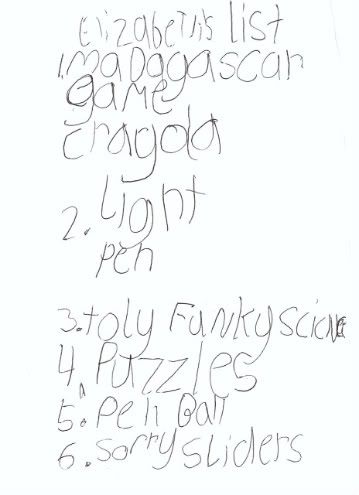 Elizabeth's list
1. madagascar
game
cragola
2. light
pen
3. toly Funky science
4. Puzzles
5. Pen Ball
6. sorry sliders